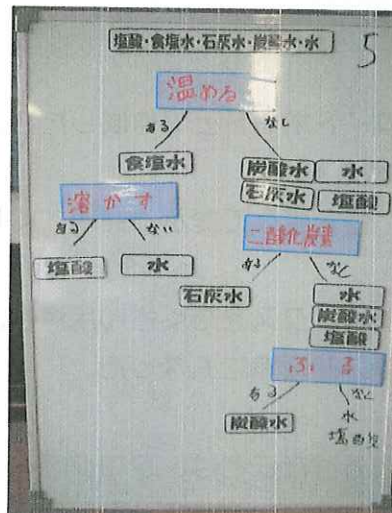 塩酸・食塩水・石灰水・炭酸水・水
5
温める
ある なし
食塩水 炭酸水 水
石灰水 塩酸
溶かす 二酸化炭素
ある ない ある なし
塩酸 水 石灰水 水
炭酸水
塩酸
ふる
ある なし
炭酸水 水
塩酸